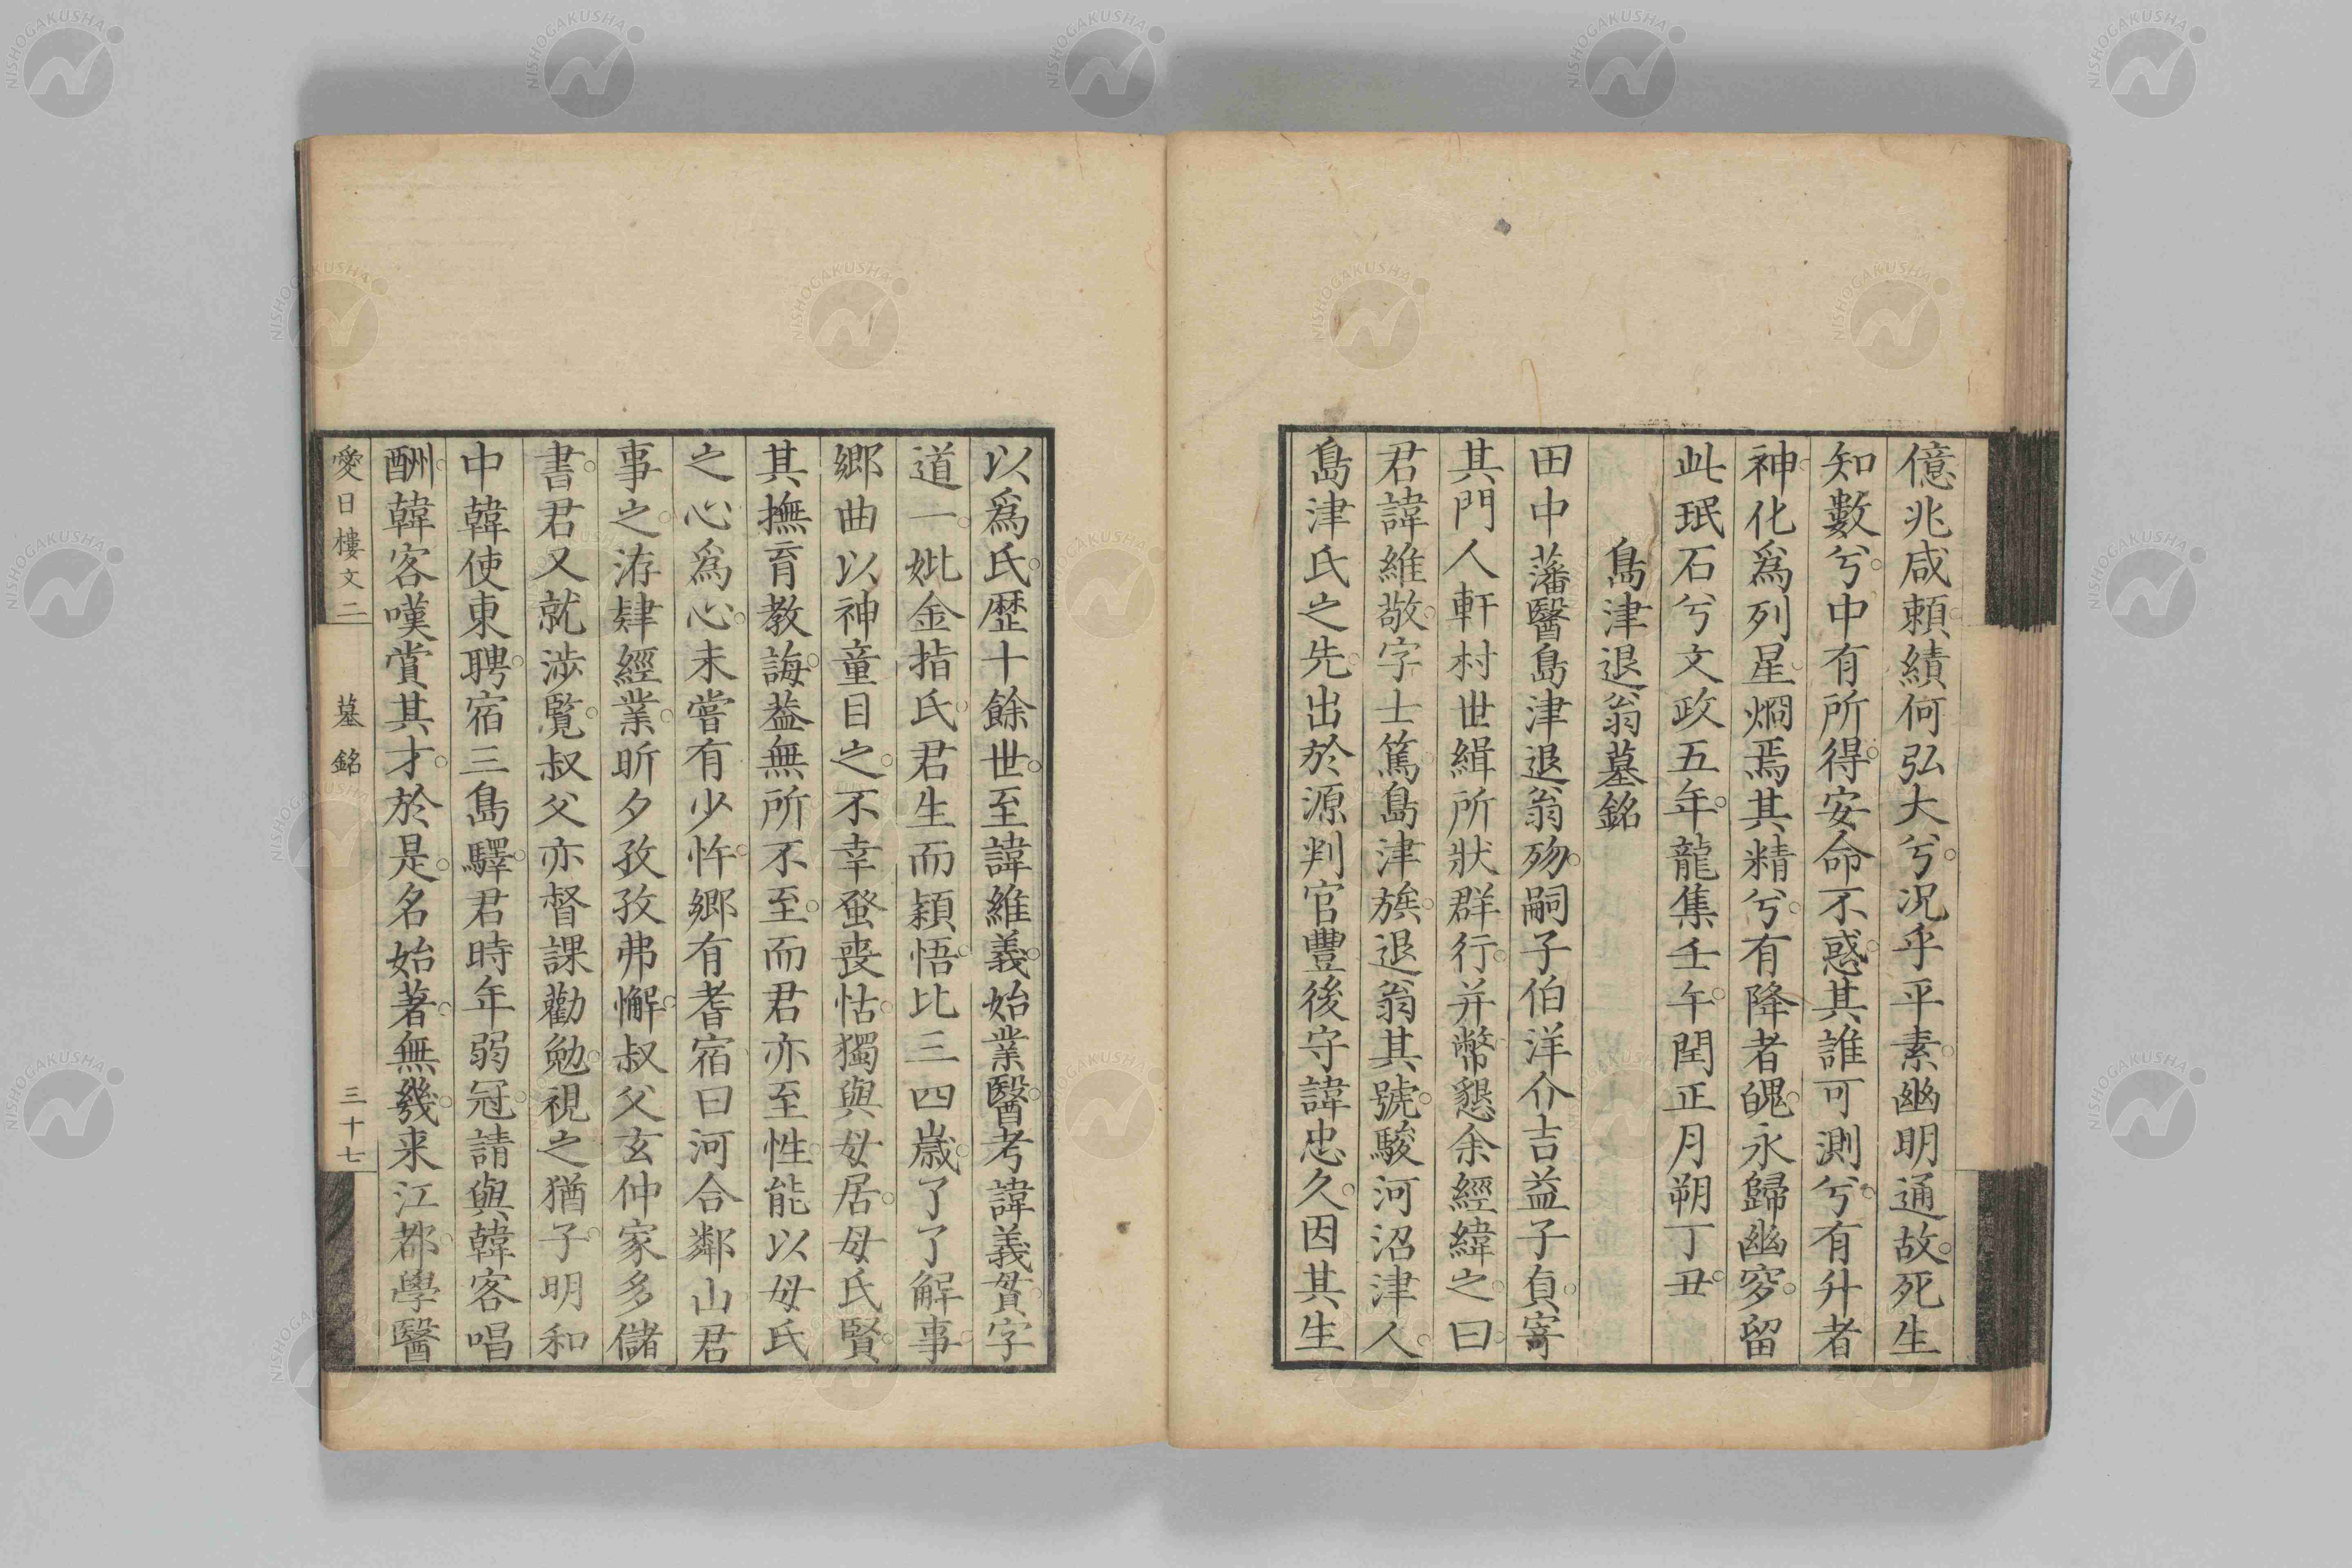 億兆咸頼績何弘大兮況乎平素幽明通故死生
知數兮中有所得安命不惑其誰可測兮有升者
神化爲列星烱焉其精兮有降者魄永歸幽穸留
此珉石兮文政五年龍集壬午閏正月朔丁丑
島津退翁墓銘
田中藩醫島津退翁歿嗣子伯洋介吉益子貞寄
其門人軒村世緝所狀群行并幣懇余經緯之曰
君諱維敬字士篤島津族退翁其號駿河沼津人
島津氏之先出於源判官豐後守諱忠久因其生
以爲氏歴十餘世至諱維義始業醫考諱義貫字
道一妣金指氏君生而穎悟比三四歳了了解事
郷曲以神童目之不幸蚤喪怙獨與母居母氏賢
其撫育教誨葢無所不至而君亦至性能以母氏
之心爲心未嘗有少忤郷有耆宿曰河合鄰山君
事之洊肄經業昕夕孜孜弗懈叔父玄仲家多儲
書君又就渉覧叔父亦督課勸勉視之猶子明和
中韓使東聘宿三島驛君時年弱冠請與韓客唱
酬韓客嘆賞其才於是名始著無幾来江都學醫
愛日樓文二 墓銘 三十七
NISHOGAKUSHA